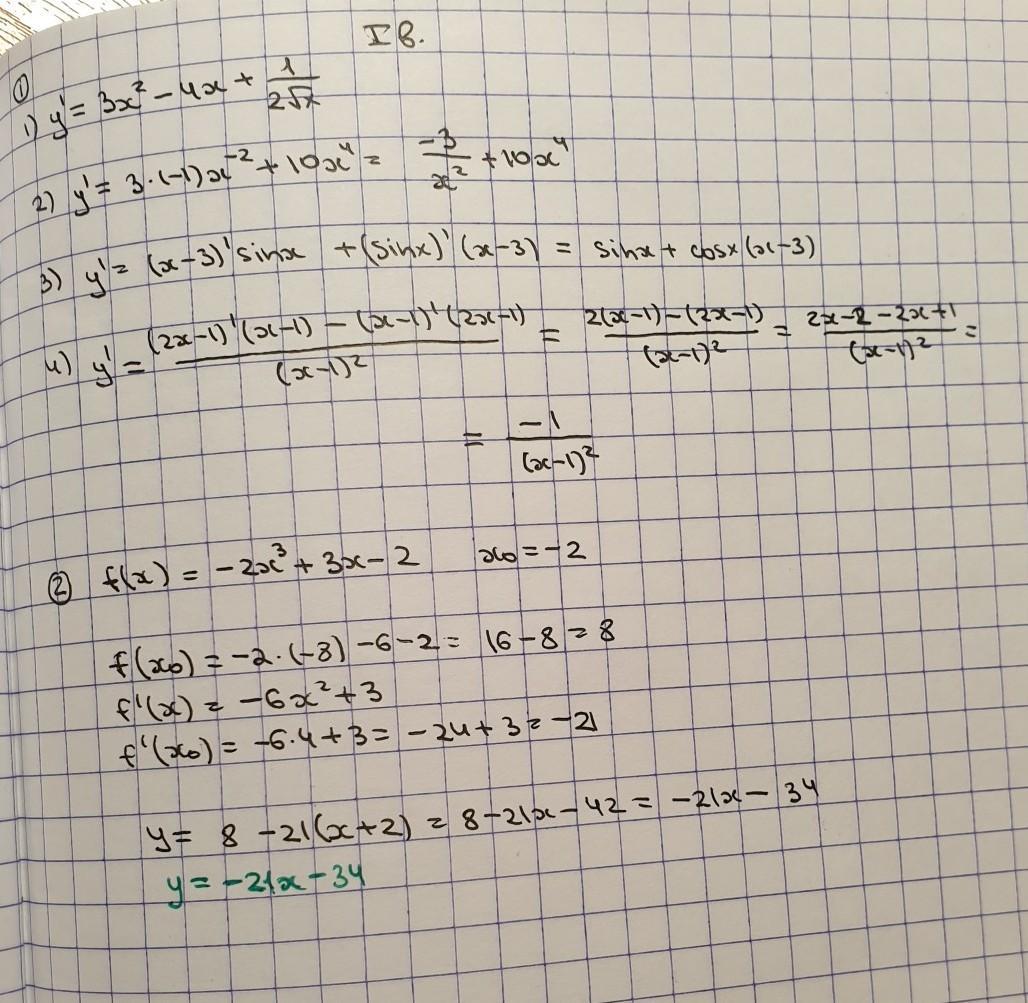 I в.
①
1) y' = 3x² - 4x + 1/(2√x)
2) y' = 3·(-1)x⁻² + 10x⁴ = -3/x² + 10x⁴
3) y' = (x-3)' sinx + (sinx)' (x-3) = sinx + cosx(x-3)
4) y' = ((2x-1)'(x-1) - (x-1)'(2x-1))/(x-1)² = (2(x-1) - (2x-1))/(x-1)² = (2x-2-2x+1)/(x-1)² =
= -1/(x-1)²
② f(x) = -2x³ + 3x - 2 x₀ = -2
f(x₀) = -2·(-8) -6-2 = 16-8 = 8
f'(x) = -6x² + 3
f'(x₀) = -6·4+3 = -24+3 = -21
y = 8 -21(x+2) = 8-21x-42 = -21x - 34
y = -21x-34